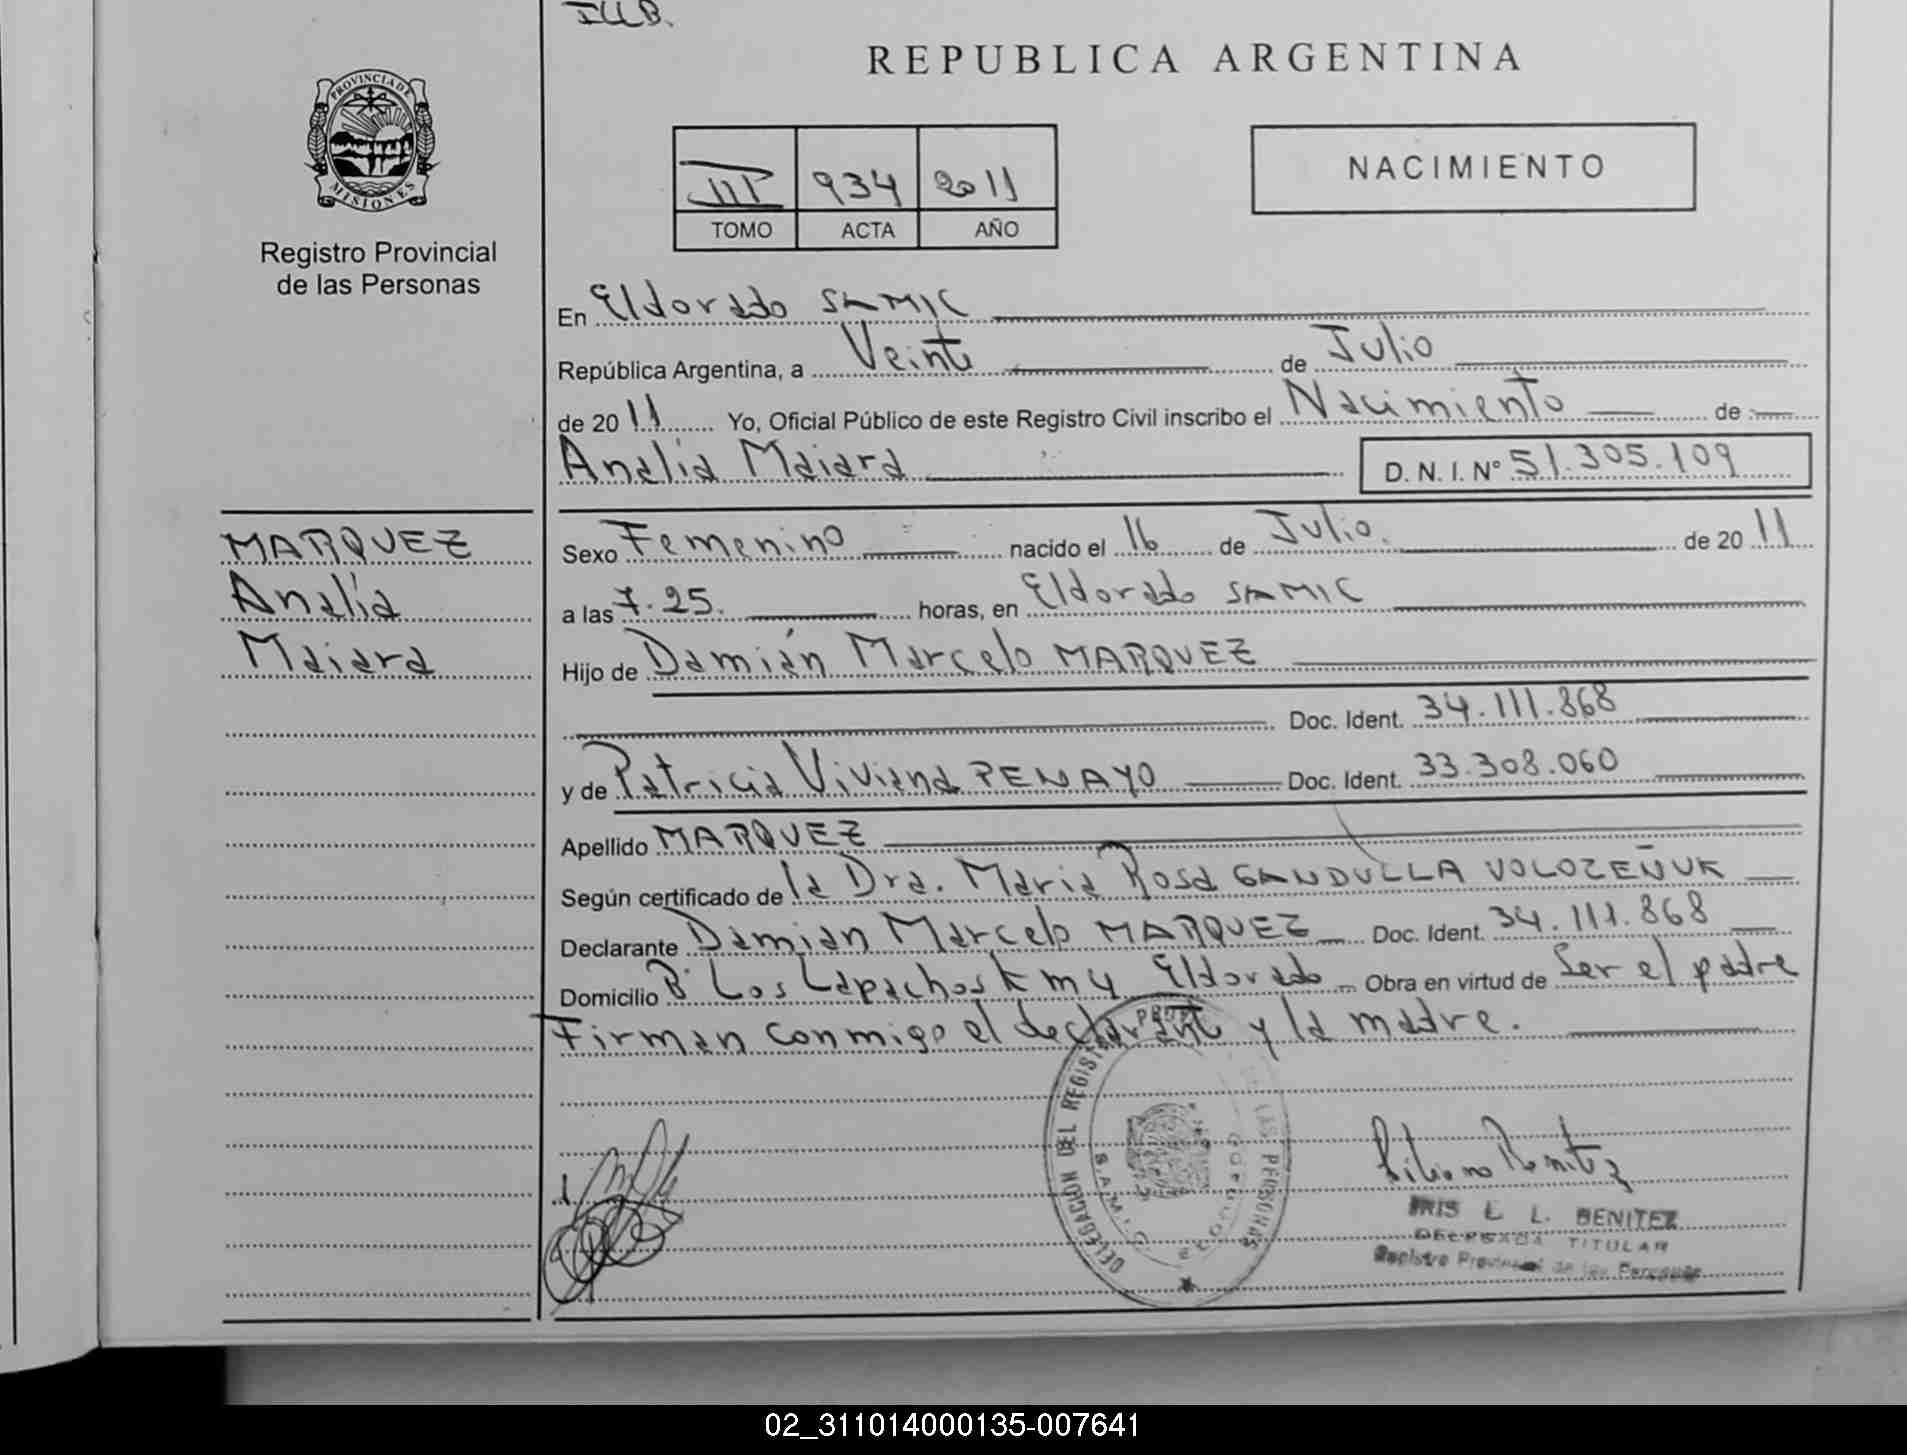 ILLB.
REPUBLICA ARGENTINA
PROVINCIA DE
MISIONES
Registro Provincial
de las Personas
III 934 2011
TOMO ACTA AÑO
NACIMIENTO
En Eldorado SAMIC
República Argentina, a Veinte de Julio
de 2011 Yo, Oficial Público de este Registro Civil inscribo el Nacimiento de
Analía Maiara D. N. I. N° 51.305.109
MARQUEZ
Analía
Maiara
Sexo Femenino nacido el 16 de Julio. de 2011
a las 7.25. horas, en Eldorado SAMIC
Hijo de Damián Marcelo MARQUEZ
Doc. Ident. 34.111.868
y de Patricia Viviana PENAYO Doc. Ident. 33.308.060
Apellido MARQUEZ
Según certificado de la Dra. Maria Rosa GANDULLA VOLOZEÑUK
Declarante Damian Marcelo MARQUEZ Doc. Ident. 34.111.868
Domicilio B° Los Lapachos km 4 Eldorado Obra en virtud de Ser el padre
Firman conmigo el declarante y la madre.
DELEGACIÓN DEL REGISTRO PROV. DE LAS PERSONAS
S.A.M.I.C. ELDORADO
IRIS L. L. BENITEZ
DELEGADA TITULAR
Registro Provincial de las Personas
02_311014000135-007641